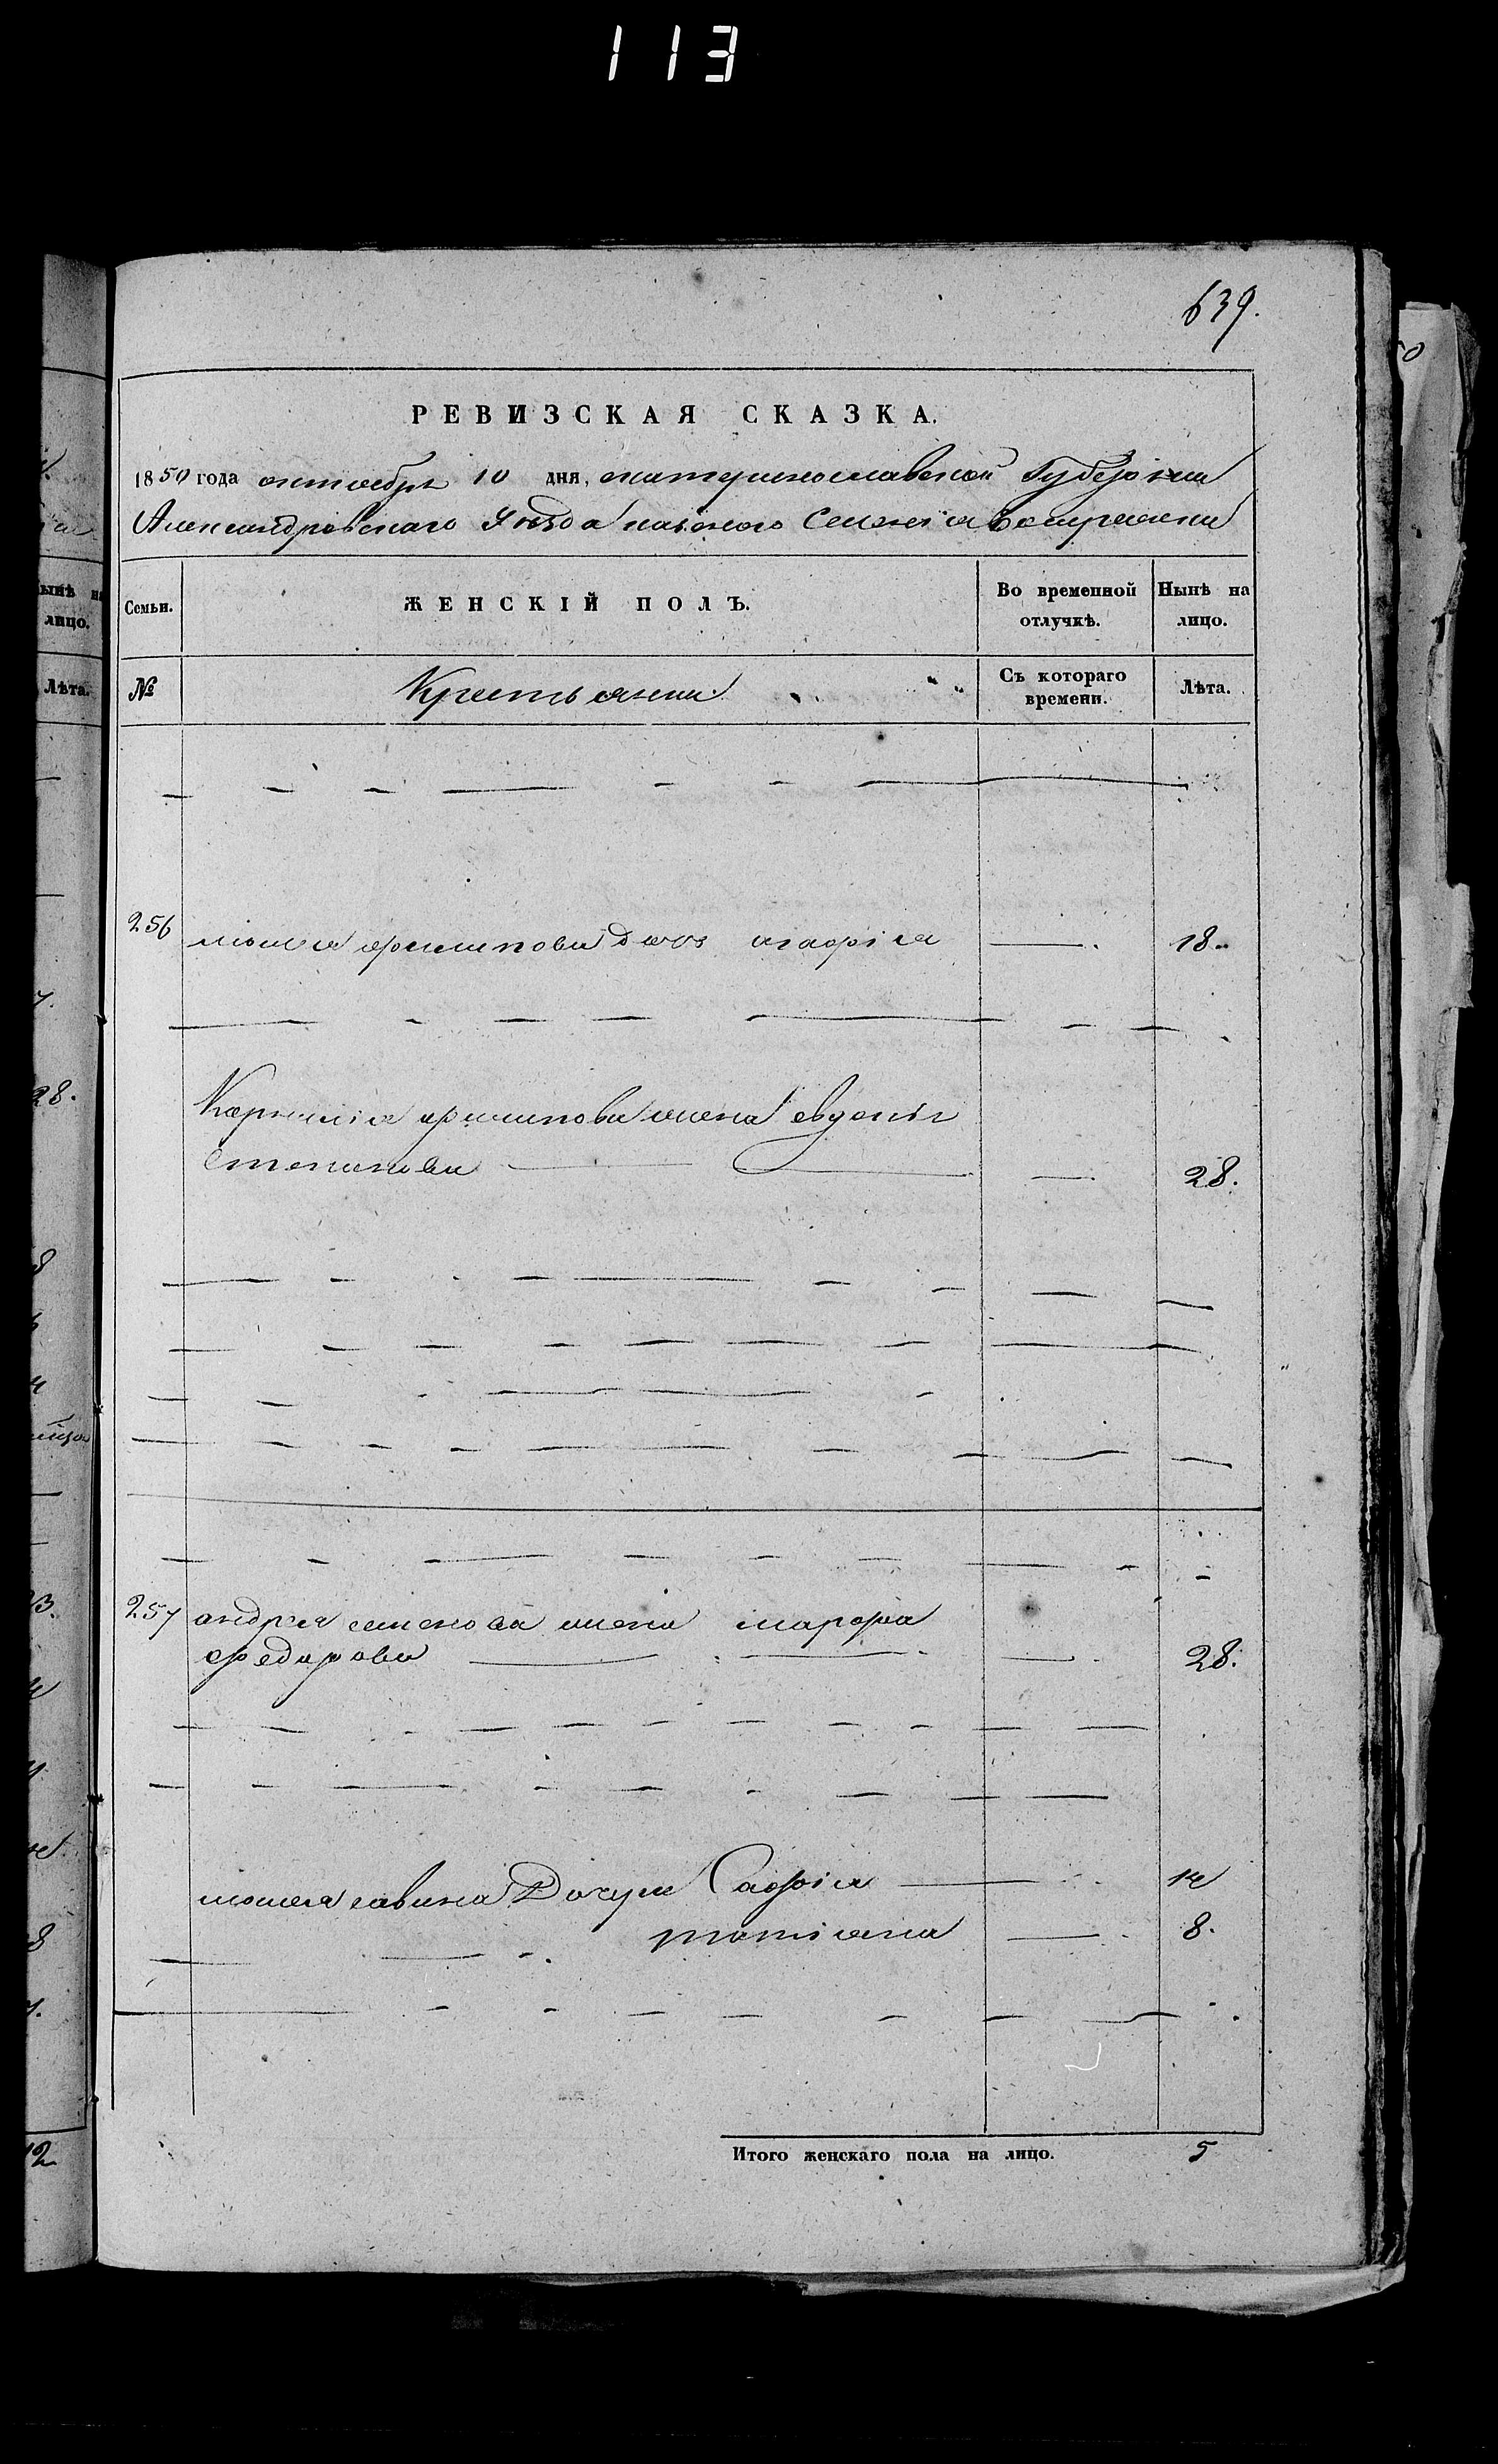 113
639.
РЕВИЗСКАЯ СКАЗКА.
1850 года октября 10 дня, екатеринославской Губернии
Александровскаго Уезда казеного Селенія
Семьи.
ЖЕНСКІЙ ПОЛЪ.
Во временной отлучкѣ.
Нынѣ на лицо.
№
Крестьяни.
Съ котораго времени.
Лѣта.
256 филипова дочь агафія 18
Корнилія филипова жена евдокія
степанова 28.
257 андрея семенова жена марфа
федарова 28.
савина Дочери Сафія 14
татіана 8.
Итого женскаго пола на лицо. 5
ынѣ на
лицо.
Лѣта.
28.
12